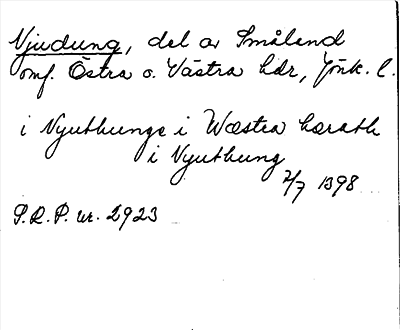 Njudung, del av Småland
omf. Östra o. Västra hdr, Jönk. l.
i Nyuthunge i Wæstra hærath
i Nyuthung
2/7 1398
S.R.P. nr. 2923